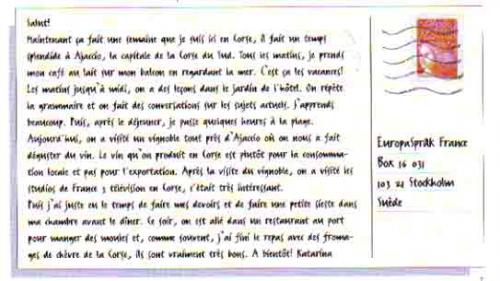 Salut!
Maintenant ça fait une semaine que je suis ici en Corse, il fait un temps
splendide à Ajaccio, la capitale de la Corse du Sud. Tous les matins, je prends
mon café au lait sur mon balcon en regardant la mer. C'est ça les vacances!
Les matins jusqu'à midi, on a des leçons dans le jardin de l'hôtel. On répète
la grammaire et on fait des conversations sur les sujets actuels. J'apprends
beaucoup. Puis, après le déjeuner, je passe quelques heures à la plage.
Aujourd'hui, on a visité un vignoble tout près d'Ajaccio où on nous a fait
déguster du vin. Le vin qu'on produit en Corse est plutôt pour la consomma-
tion locale et pas pour l'exportation. Après la visite du vignoble, on a visité les
studios de France 3 télévision en Corse, c'était très intéressant.
Puis j'ai juste eu le temps de faire mes devoirs et de faire une petite sieste dans
ma chambre avant le dîner. Ce soir, on est allé dans un restaurant au port
pour manger des moules et, comme souvent, j'ai fini le repas avec des froma-
ges de chèvre de la Corse, ils sont vraiment très bons. A bientôt! Katarina
EuropaSpråk France
Box 16 031
103 21 Stockholm
Suède